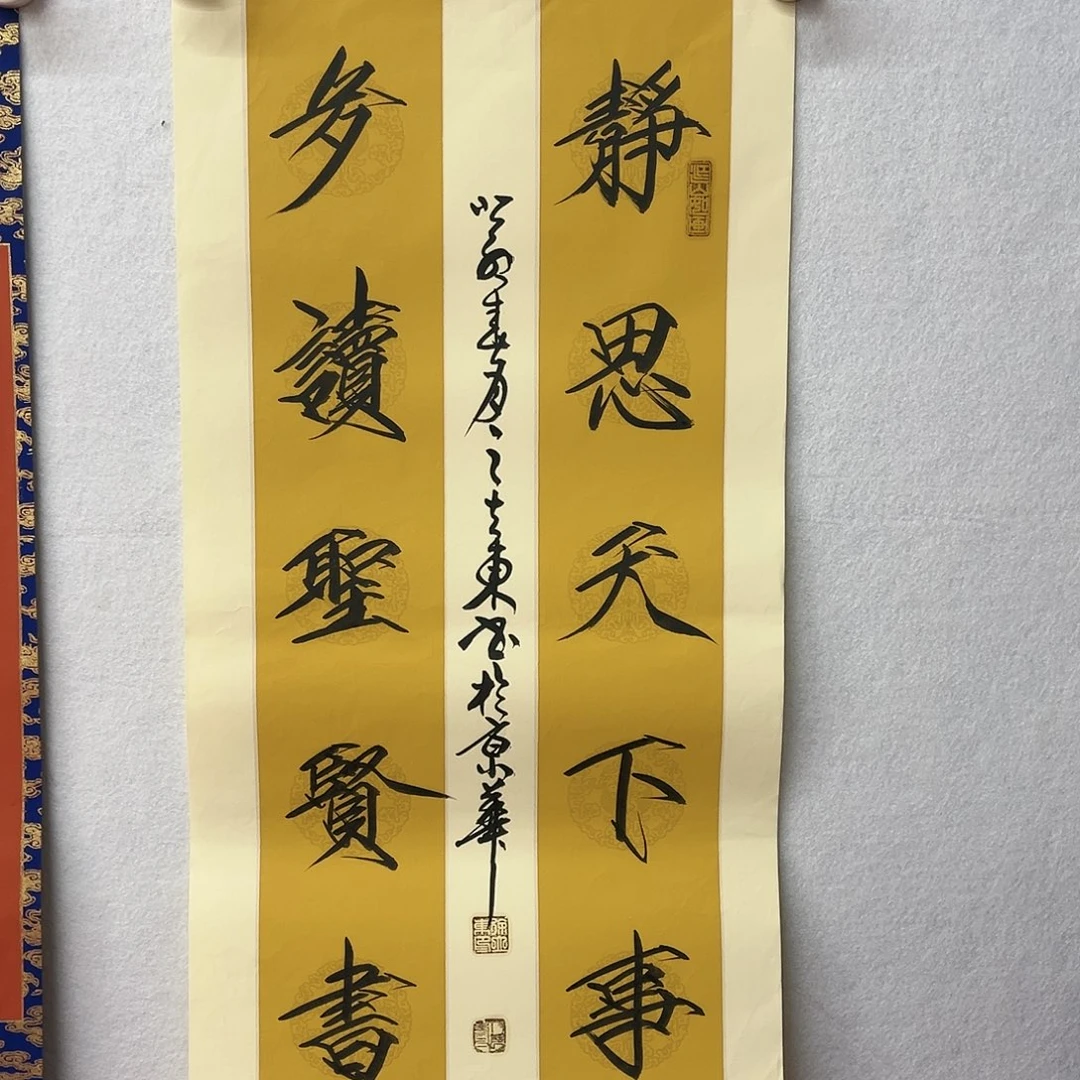 靜思天下事
多讀聖賢書
春月
東書於京華